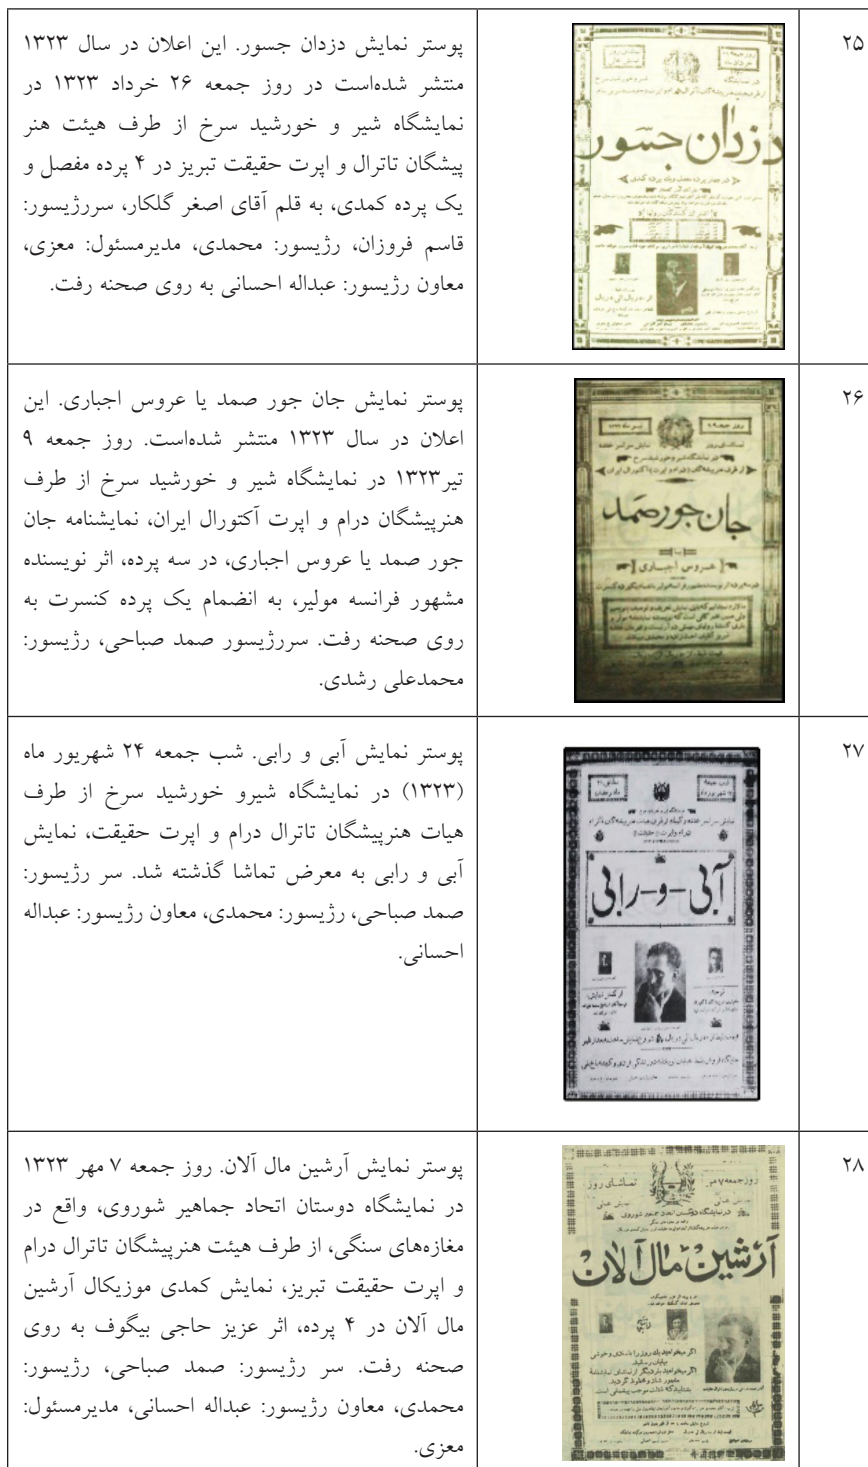 ۲۵
پوستر نمایش دزدان جسور. این اعلان در سال ۱۳۲۳
منتشر شده‌است در روز جمعه ۲۶ خرداد ۱۳۲۳ در
نمایشگاه شیر و خورشید سرخ از طرف هیئت هنر
پیشگان تاترال و اپرت حقیقت تبریز در ۴ پرده مفصل و
یک پرده کمدی، به قلم آقای اصغر گلکار، سررژیسور:
قاسم فروزان، رژیسور: محمدی، مدیرمسئول: معزی،
معاون رژیسور: عبداله احسانی به روی صحنه رفت.
دزدان جسور
۲۶
پوستر نمایش جان جور صمد یا عروس اجباری. این
اعلان در سال ۱۳۲۳ منتشر شده‌است. روز جمعه ۹
تیر۱۳۲۳ در نمایشگاه شیر و خورشید سرخ از طرف
هنرپیشگان درام و اپرت آکتورال ایران، نمایشنامه جان
جور صمد یا عروس اجباری، در سه پرده، اثر نویسنده
مشهور فرانسه مولیر، به انضمام یک پرده کنسرت به
روی صحنه رفت. سررژیسور صمد صباحی، رژیسور:
محمدعلی رشدی.
جان جور صمد
یا
عروس اجباری
۲۷
پوستر نمایش آبی و رابی. شب جمعه ۲۴ شهریور ماه
(۱۳۲۳) در نمایشگاه شیرو خورشید سرخ از طرف
هیات هنرپیشگان تاترال درام و اپرت حقیقت، نمایش
آبی و رابی به معرض تماشا گذشته شد. سر رژیسور:
صمد صباحی، رژیسور: محمدی، معاون رژیسور: عبداله
احسانی.
آبی-و-رابی
۲۸
پوستر نمایش آرشین مال آلان. روز جمعه ۷ مهر ۱۳۲۳
در نمایشگاه دوستان اتحاد جماهیر شوروی، واقع در
مغازه‌های سنگی، از طرف هیئت هنرپیشگان تاترال درام
و اپرت حقیقت تبریز، نمایش کمدی موزیکال آرشین
مال آلان در ۴ پرده، اثر عزیز حاجی بیگوف به روی
صحنه رفت. سر رژیسور: صمد صباحی، رژیسور:
محمدی، معاون رژیسور: عبداله احسانی، مدیرمسئول:
معزی.
روز جمعه ۷ مهر
تماشای روز
آرشین مال آلان